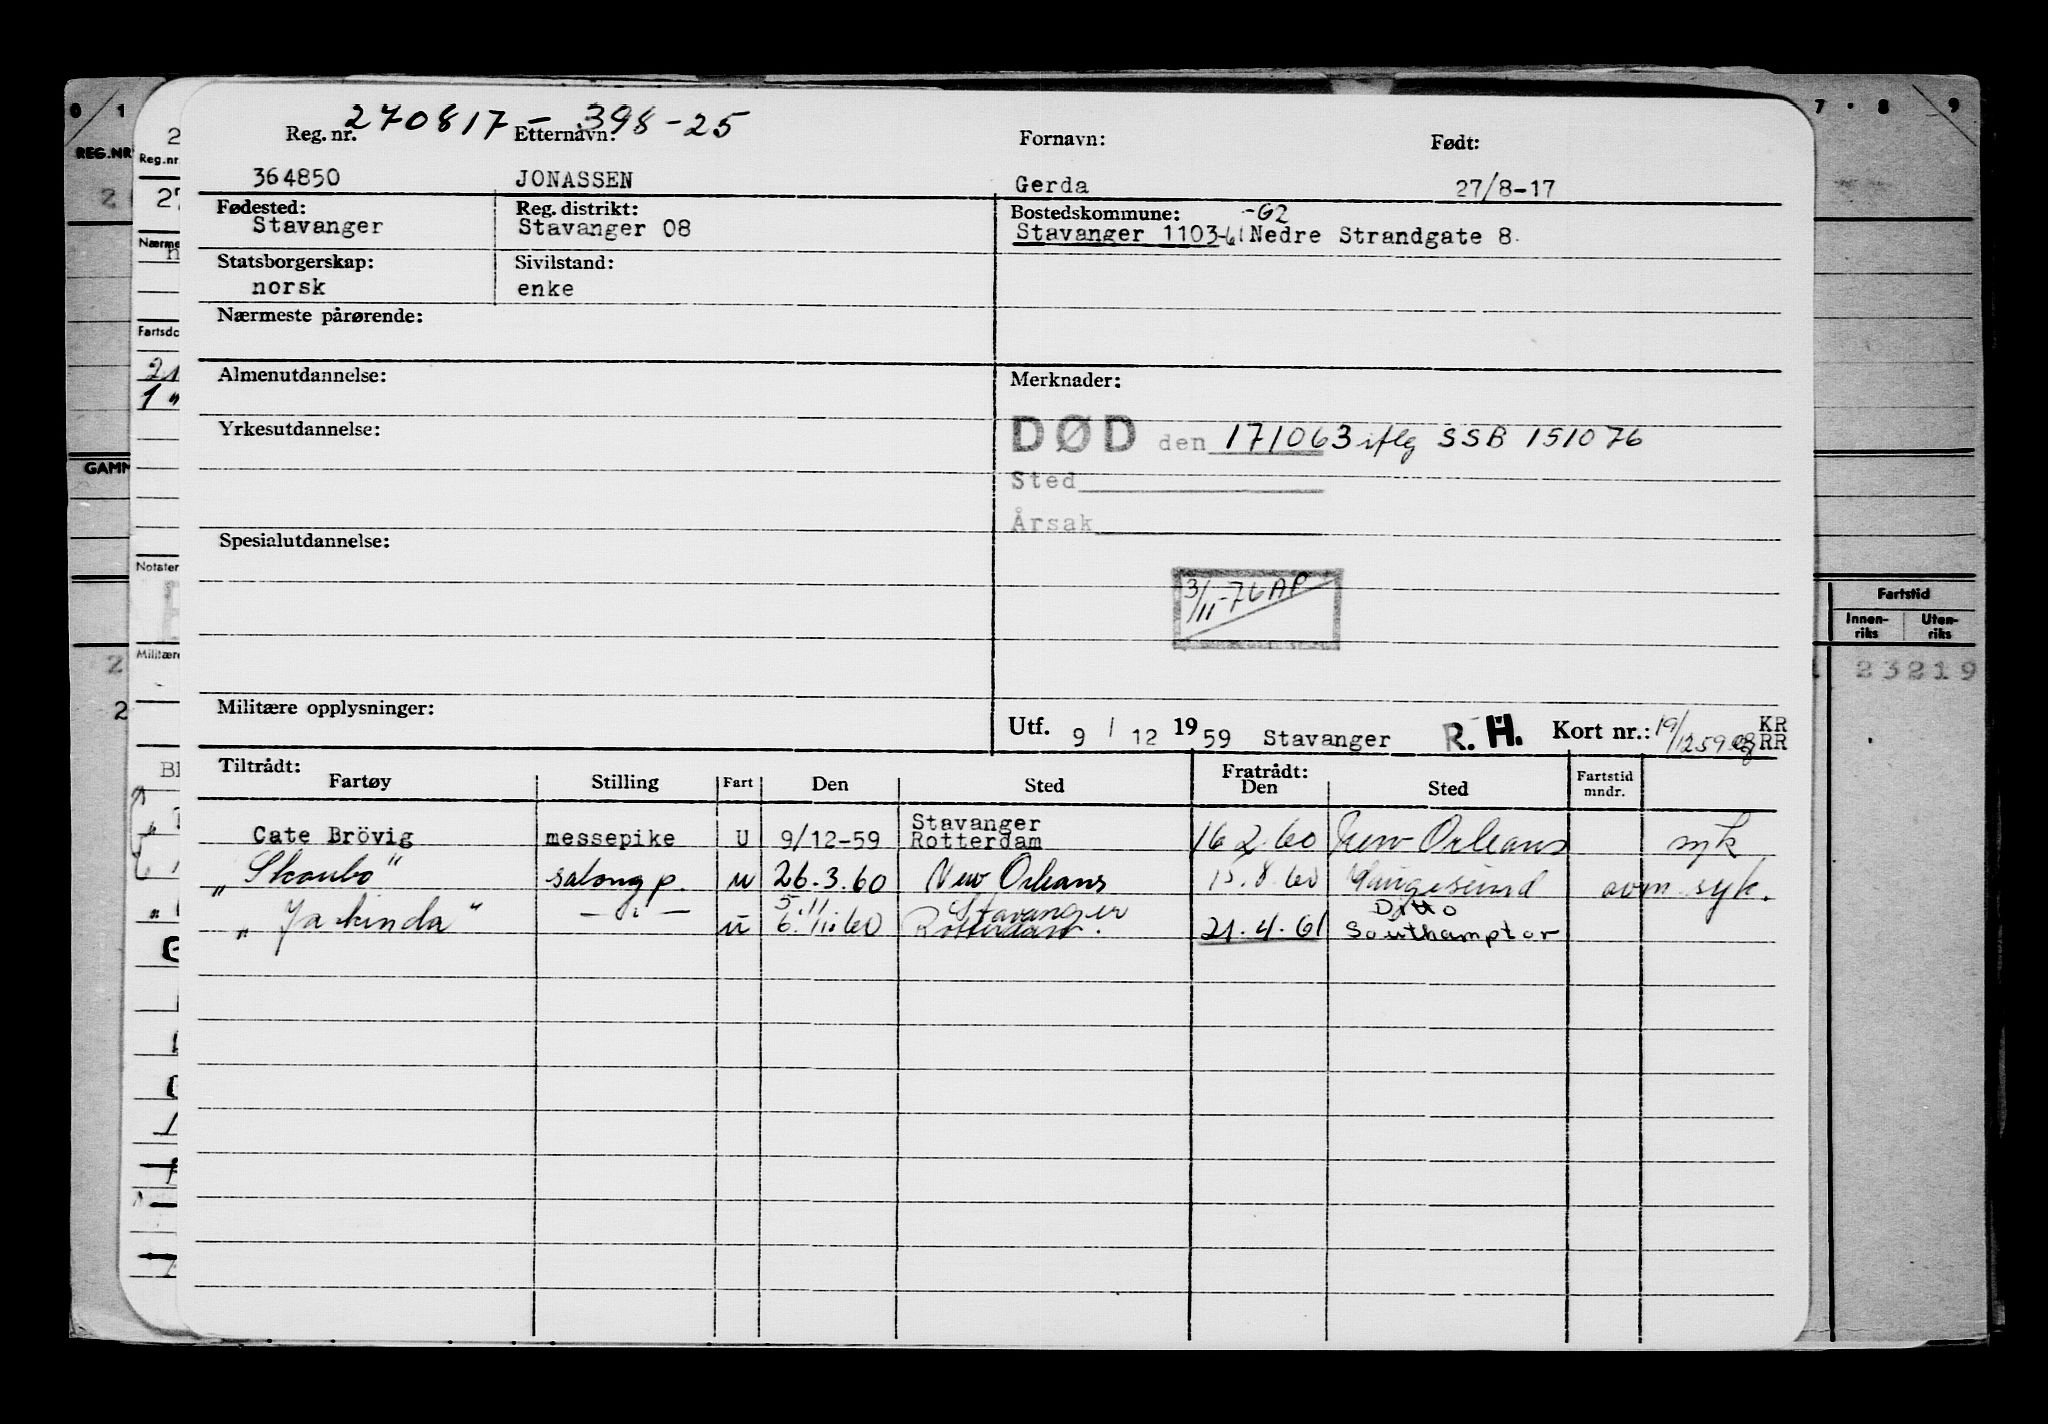 270817 - 398-25
Reg. nr. Etternavn: Fornavn: Født:
364850 JONASSEN Gerda 27/8-17
Fødested: Reg. distrikt: Bostedskommune: -62
Stavanger Stavanger 08 Stavanger 1103-61 Nedre Strandgate 8.
Statsborgerskap: Sivilstand:
norsk enke
Nærmeste pårørende:
Almenutdannelse: Merknader:
Yrkesutdannelse: DØD den 171063 iflg SSB 151076
Sted
Årsak
Spesialutdannelse:
3/11-76 AP
Militære opplysninger:
Utf. 9 / 12 1959 Stavanger R. H. Kort nr.: 19/12 59 KR RR
Tiltrådt: Fratrådt:
Fartøy Stilling Fart Den Sted Den Sted Fartstid mndr.
Cate Brövig messepike U 9/12-59 Stavanger Rotterdam 16 2.60 New Orleans syk
"Skaubo" salong p. u 26.3.60 New Orleans 15.8.60 Haugesund avm. syk.
"Jarkinda" — " — u 5.11 6.11.60 Stavanger Rotterdam. 21.4.61 Ditto Southampton
0 1
REG.NR
Reg.nr.
27
Nærme
Fartsdo
21
1 "
GAMM
Notater
Militære
2
7 · 8 9
Fartstid
Innen-riks Uten-riks
23219